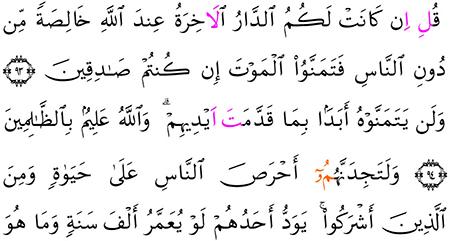 قُلِ اِن كَانَتْ لَكُمُ الدَّارُ الَاخِرَةُ عِندَ اَللَّهِ خَالِصَةً مِّن
دُونِ اِلنَّاسِ فَتَمَنَّوُاْ الْمَوْتَ إِن كُنتُمْ صَٰدِقِينَ ۝٩٣
وَلَن يَتَمَنَّوْهُ أَبَداَۢ بِمَا قَدَّمَتَ اَيْدِيهِمْۖ وَاللَّهُ عَلِيمُۢ بِالظَّٰلِمِينَ
۝٩٤ وَلَتَجِدَنَّهُمُۥٓ أَحْرَصَ اَلنَّاسِ عَلَىٰ حَيَوٰةٖ وَمِنَ
اَلَّذِينَ أَشْرَكُواْۖ يَوَدُّ أَحَدُهُمْ لَوْ يُعَمَّرُ أَلْفَ سَنَةٖ وَمَا هُوَ